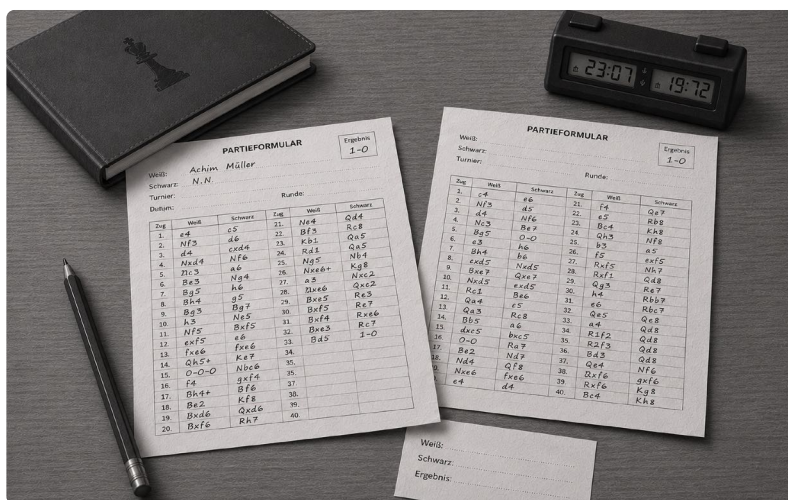 23:07 19:72
PARTIEFORMULAR
Ergebnis
1-0
Weiß: Achim Müller
Schwarz: N.N.
Turnier: Runde:
Datum:
Zug Weiß Schwarz Zug Weiß Schwarz
1. e4 c5 21. Ne4 Qd4
2. Nf3 d6 22. Bf3 Rc8
3. d4 cxd4 23. Kb1 Qa5
4. Nxd4 Nf6 24. Rd1 Qa5
5. Nc3 a6 25. Ng5 Nb4
6. Be3 Ng4 26. Nxe6+ Kg8
7. Bg5 h6 27. a3 Nxc2
8. Bh4 g5 28. Qxc2
9. Bg3 Bg7 29. Bxe5 Re3
10. h3 Ne5 30. Bxf5 Re7
11. Nf5 Bxf5 31. Bxf4 Rxe6
12. exf5 e6 32. Bxe3 Rc7
13. fxe6 fxe6 33. Bd5 1-0
14. Qh5+ Ke7 34.
15. 0-0-0 Nbc6 35.
16. f4 gxf4 36.
17. Bh4+ Bf6 37.
18. Be2 Kf8 38.
19. Bxd6 Qxd6 39.
20. Bxf6 Rh7 40.
PARTIEFORMULAR
Ergebnis
1-0
Weiß:
Schwarz:
Turnier:
Runde:
Zug Weiß Schwarz Zug Weiß Schwarz
1. c4 e6 21. f4 Qe7
2. Nf3 d5 22. e5 Rb8
3. d4 Nf6 23. Bc4 Kh8
4. Nc3 Be7 24. Qh3 Nf8
5. Bg5 0-0 25. b3 a5
6. e3 h6 26. f5 exf5
7. Bh4 b6 27. Rxf5 Nh7
8. cxd5 Nxd5 28. Rxf1 Qd8
9. Bxe7 Qxe7 29. Qg3 Re7
10. Nxd5 exd5 30. h4 Rbb7
11. Rc1 Be6 31. e6 Rbc7
12. Qa4 c5 32. Qe5 Qe8
13. Qa3 Rc8 33. a4 Qd8
14. Bb5 a6 34. R1f2 Qd8
15. dxc5 bxc5 35. R2f3 Qd8
16. 0-0 Ra7 36. Bd3 Qd8
17. Be2 Nd7 37. Qe4 Nf6
18. Nd4 Qf8 38. gxf6
Nxe6 fxe6 39. Rxf6 Kg8
e4 d4 40. Bc4 Kh8
Weiß:
Schwarz:
Ergebnis: